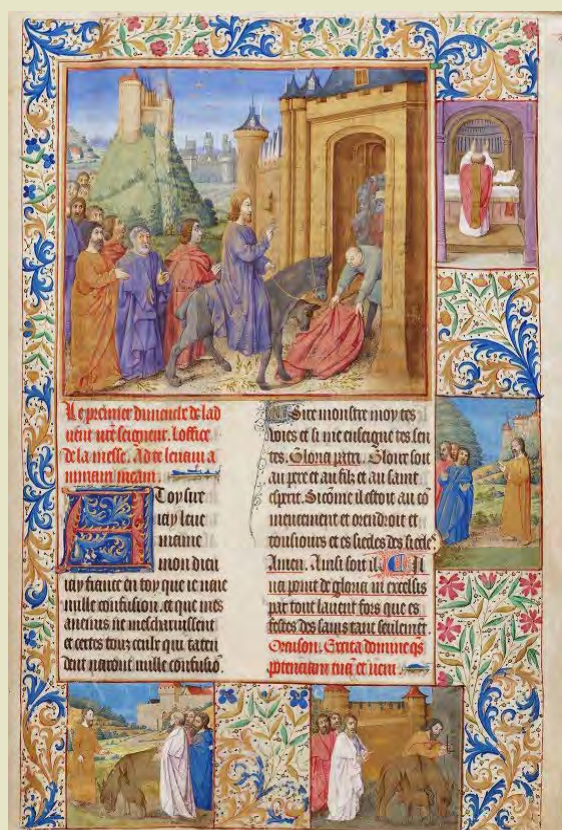 Le premier dimencle de lad
uent nr̃e seigneur. Loffice
de la messe. Ad te leuaui a
nimam meam.
A Toy sire
iay leue
mame
mon dieu
iay fiance en toy que ie naie
nulle confusion. et que mes
anemis ne mescharnissent
et certes touz ceulz qui taten
dent naront nulle confusiõ.
Sire monstre moy tes
voies et si me enseigne tes sen
tes. Gloria patri. Gloire soit
au pere et au filz et au saint
esperit. Sicõme il estoit au cõ
mencement et orendroit et
tousiours et es siecles des siecles
Amen. Ainsi soit il. Il
na point de gloria in excelsis
par tout lauent fors que es
festes des sains tant seulement.
Oroison. Excita domine q̃s
potentiam tuã et ueni.